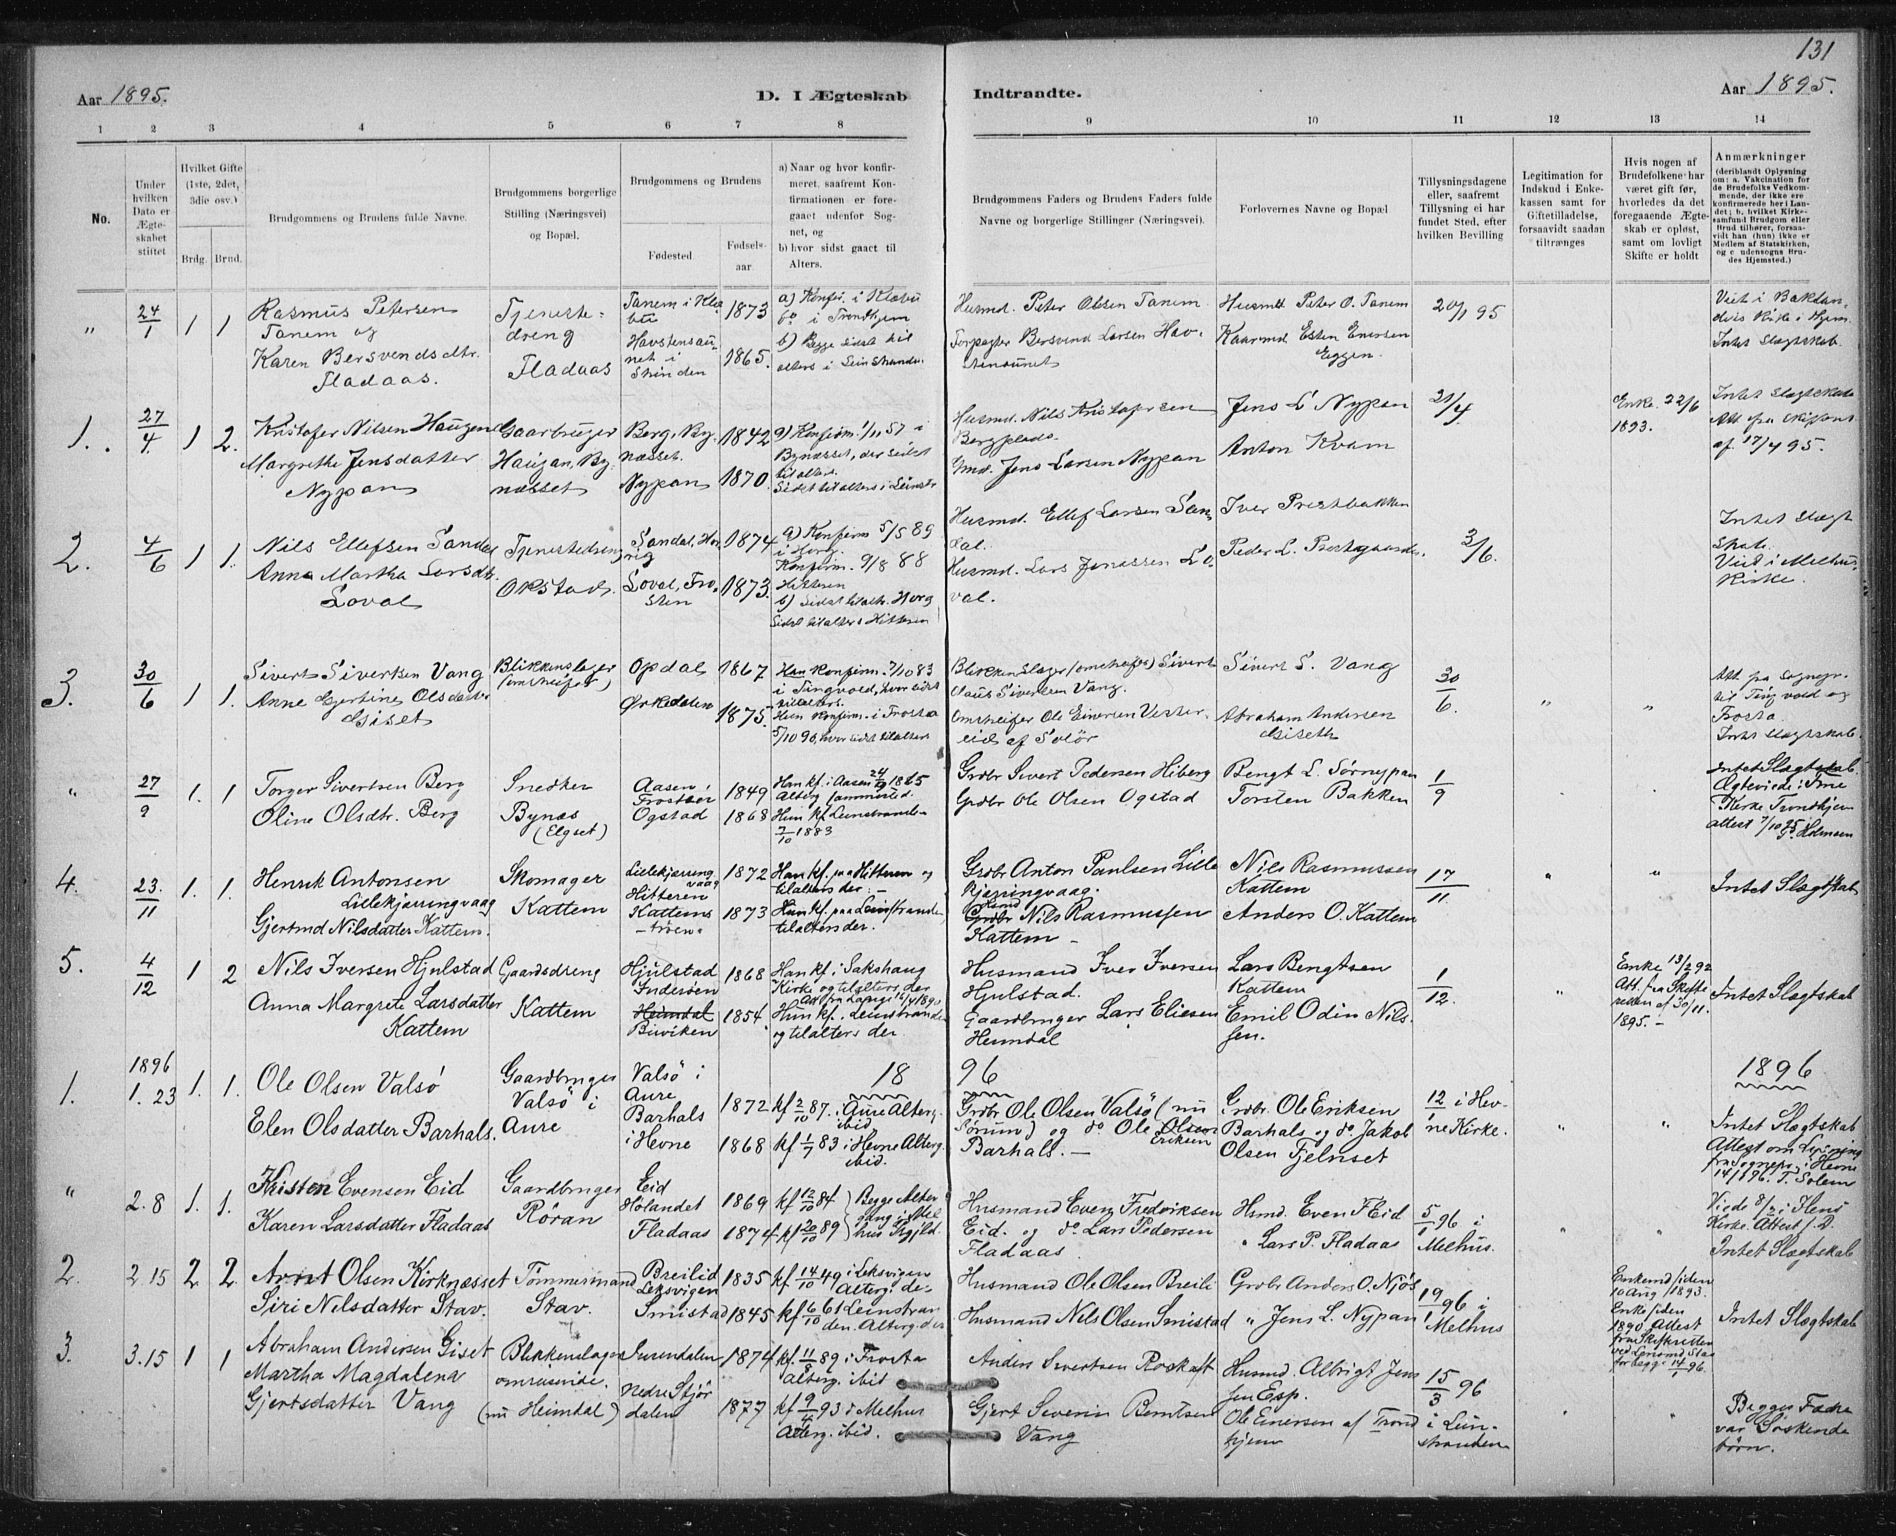 131
Aar 1895.
D. I Ægteskab
Indtraadte.
Aar 1895.
1 2 3 4 5 6 7 8 9 10 11 12 13 14
No.
Under hvilken Dato er Ægteskabet stiftet
Hvilket Gifte (1ste, 2det, 3die osv.)
Brdg. Brud.
Brudgommens og Brudens fulde Navne.
Brudgommens borgerlige Stilling (Næringsvei) og Bopæl.
Brudgommens og Brudens
Fødested
Fødselsaar.
a) Naar og hvor konfirmeret, saafremt Konfirmationen er foregaaet udenfor Sognet, og
b) hvor sidst gaaet til Alters.
Brudgommens Faders og Brudens Faders fulde Navne og borgerlige Stillinger (Næringsvei).
Forlovernes Navne og Bopæl
Tillysningsdagene eller, saafremt Tillysning ei har fundet Sted, efter hvilken Bevilling
Legitimation for Indskud i Enkekassen samt for Giftetilladelse, forsaavidt saadan tiltrænges
Hvis nogen af Brudefolkene har været gift før, hvorledes da det foregaaende Ægteskab er opløst, samt om lovligt Skifte er holdt
Anmærkninger
(deriblandt Oplysning om: a. Vakcination for de Brudefolks Vedkommende, der ikke ere konfirmerede her i Landet; b. hvilket Kirkesamfund Brudgom eller Brud tilhører, forsaavidt han (hun) ikke er Medlem af Statskirken, og c. udensogns Brudes Hjemsted.)
" 24/1 1 1
Rasmus Petersen
Tanem og
Karen Bersvendsdtr.
Fladaas.
Tjenestedreng
Fladaas
Tanem i Klæbu 1873
Havstensaunet i Strinden 1865.
a) Konfir. i Klæbu
do i Trondhjem
b) Begge sidst til
alters i Leinstranden
Husmd. Peter Olsen Tanem
Forpagter Bersvend Larsen Havstensaunet
Husmd Peter O. Tanem
Kaarmd. Esten Enersen
Eggen.
20/1 95
Viet i Baklandets Kirke i Hjem
Intet Slagtskab.
1. 27/4 1 2.
Kristofer Nilsen Haugen
Margrethe Jensdatter
Nypan
Gaarbruger
Haugan, Bynæsset
Berg, Bynæsset. 1842
Nypan 1870.
a) Konfirm. 1/11 57 i
Bynæsset, der sidst
til alters.
Sidst til alters i Leinstr
Husmd. Nils Kristofersen
Bergplads
Gmd. Jens Larsen Nypan
Jens L. Nypan
Anton Kvam
21/4.
Enke 22/6
1893.
Intet Slagtskab
Att fra Skifteret
af 17/4 95.
2. 4/6 1 1.
Nils Ellefsen Sandal
Anna Martha Larsdtr.
Loval
Tjenestedreng
Okstad.
Sandal, Horrig 1874
Loval, Frosten 1873.
a) Konfirm 5/5 89
i Horg.
Konfirm. 9/8 88
Hitteren
b) Sidst til altr. Horg
Sidst til alters Hitteren
Husmd. Ellef Larsen Sandal.
Husmd. Lars Jonassen Loval.
Iver Prestbakken
Peder L. Prestgaarden.
3/6.
Intet Slagtskab.
Viet i Melhus
Kirke.
3. 30/6 1 1.
Sivert Sivertsen Vang
Anne Gjertine Olsdatter
Gisset
Blikkenslager
(omstreifer)
Opdal 1867
Ørkedalen 1875.
Han Konfirm. 7/10 83
i Tingvold, hvor sidst
til alters.
Hun Konfirm. i Frosta
5/10 90, hvor sidst til alters
Blikkenslager (omstreifer) Sivert
Claus Sivertsen Vang.
Omstreifer Ole Einersen Vesterlid af Solør
Sivert S. Vang
Abraham Andersen
Giseth
30/6.
" "
Att fra Sognepr.
til Tingvold og
Frosta.
Intet Slagtskab.
" 27/9 1. 1
Torger Sivertsen Berg
Oline Olsdtr. Berg
Snedker
Bynæs
(Elgset)
Aasen i Frosten 1849
Ogstad 1868
Han kf. i Aasen 24/9 1865
Alterg sammested.
Hun kf Leinstranden
7/10 1883
Grdbr Sivert Pedersen Hiberg
Grdbr Ole Olsen Ogstad
Bengt L. Sørnypan
Torsten Bakken
1/9
Intet Slagtskab
Ægteviede i Frue
Kirke Trondhjem
attest 7/10 95
Holmsen
4. 23./11 1. 1.
Henrik Antonsen
Lillekjærringvaag
Gjertrud Nilsdatter Kattem.
Skomager
Kattem
Lillekjærringvaag Hitteren 1872
Kattemstrøen 1873
Han kf. paa Hitteren og
til alters der.
Hun kf. paa Leinstranden
til alters der.
Grdbr Anton Paulsen Lillekjærringvaag.
Husmd Nils Rasmussen
Kattem
Nils Rasmussen
Kattem
Anders O. Kattem
17/11
" "
Intet Slagtskab
5. 4/12 1 2
Nils Iversen Hjulstad
Anna Margrete Larsdatter
Kattem
Gaardsdreng
Kattem
Hjulstad Inderøen 1868
Heimdal Buviken 1854
Han kf. i Sakshaug
Kirke og til alters der
Hun kf. i Leinstranden
og til alters der
Husmand Iver Iversen
Hjulstad.
Gaardbruger Lars Eliesen
Heimdal
Lars Bengtsen
Kattem
Emil Odin Nilssen.
1/12.
"
Enke 13/2 92
Att. fra Skifteretten af 30/11.
1895.
Intet Slagtskab
1896
18 96
1896
1. 1. 23 1. 1.
Ole Olsen Valsö
Elen Olsdatter Barhals.
Gaardbruger
Valsö i
Aure
Valsö i Aure 1872
Barhals i Hevne 1868
kf 2/10 87. i Aure Alterg. ibid
kf 1/7 83 i Hevne Alterg. ibid.
Grdbr Ole Olsen Valsö (nu
Sørum) og do Ole Olsen
Eriksen
Barhals.
Grdbr. Ole Eriksen
Barhals og do Jakob
Olsen Fjelnset
12/1 i Hevne Kirke.
" "
Intet Slagtskab
Attest om Lysning
fra Sognepr. i Hevne
14/1 86. T. Solem
" 2. 8 1. 1.
Kristen Evensen Eid
Karen Larsdatter Fladaas
Gaardbruger
Röran
Eid Hölandet 1869
Fladaas 1874
kf 12/10 84
kf 20/10 89
Begge Altergang i Melhus
Husmand Even Fredriksen
Eid. og do Lars Pedersen
Fladaas
Husmd. Even F Eid
" Lars P. Fladaas
5/1 96 i
Melhus.
" "
Viede 8/2 i Flenö
Kirke. Attest f. D.
Intet Slagtskab
2. 2. 15 2 2.
Arnt Olsen Kirknæsset
Siri Nilsdatter Stav.
Tömmermand
Stav.
Breilid Leksvigen 1835
Smistad 1845
kf 14/10 49 i Leksvigen
Alterg. der
kf 6/10 61 Leinstranden. Alterg. der
Husmand Ole Olsen Breili
Husmand Nils Olsen Smistad
Grdbr Anders O. Njös
" Jens L. Nypan
19/1 96 i
Melhus
Enkemd siden
10 Aug 1893.
Enke siden
1890 Attest
fra Skifteretten
ved Lensmd Stav
for begge 14/1 96.
Intet Slagtskab
3. 3. 15 1 1
Abraham Andersen Giset
Martha Magdalena
Gjertsdatter Vang
Blikkenslager
omreisende.
(nu Heimdal)
Surendalen 1874
Nedre Stjördalen 1877
kf. 11/8 89 i Frosta
Alterg. ibid
kf 9/4 93 i Melhus
Alterg. ibid.
Anders Sivertsen Roskaft
Gjert Severin Berntsen
Vang
Husmd. Albrigt Jenssen Esp.
Ole Einersen af Trondhjem
15/3 96
i Leinstranden
" "
Begges Fædre
var Söskendebörn.